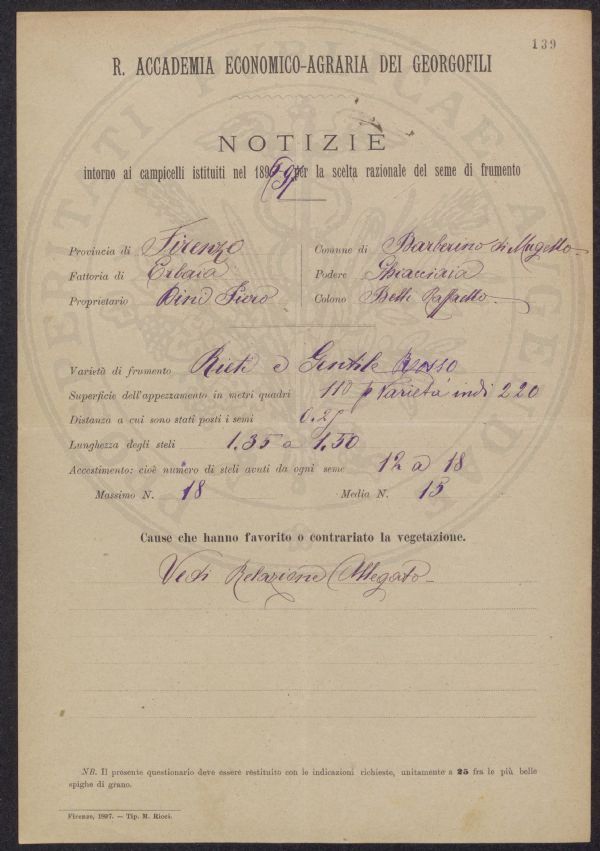 139
R. ACCADEMIA ECONOMICO-AGRARIA DEI GEORGOFILI
NOTIZIE
intorno ai campicelli istituiti nel 1896/97 per la scelta razionale del seme di frumento
Provincia di Firenze
Comune di Barberino di Mugello
Fattoria di Erbaia
Podere Ghiacciaia
Proprietario Dini Piero
Colono Belli Raffaello
Varietà di frumento Rieti e Gentile Rosso
Superficie dell'appezzamento in metri quadri 110 p Varietà indi 220
Distanza a cui sono stati posti i semi 0.25
Lunghezza degli steli 1.35 a 1.50
Accestimento: cioè numero di steli avuti da ogni seme 12 a 18
Massimo N. 18 Media N. 15
Cause che hanno favorito o contrariato la vegetazione.
Vedi Relazione Allegato
NB. Il presente questionario deve essere restituito con le indicazioni richieste, unitamente a 25 fra le più belle
spighe di grano.
Firenze, 1897. — Tip. M. Ricci.